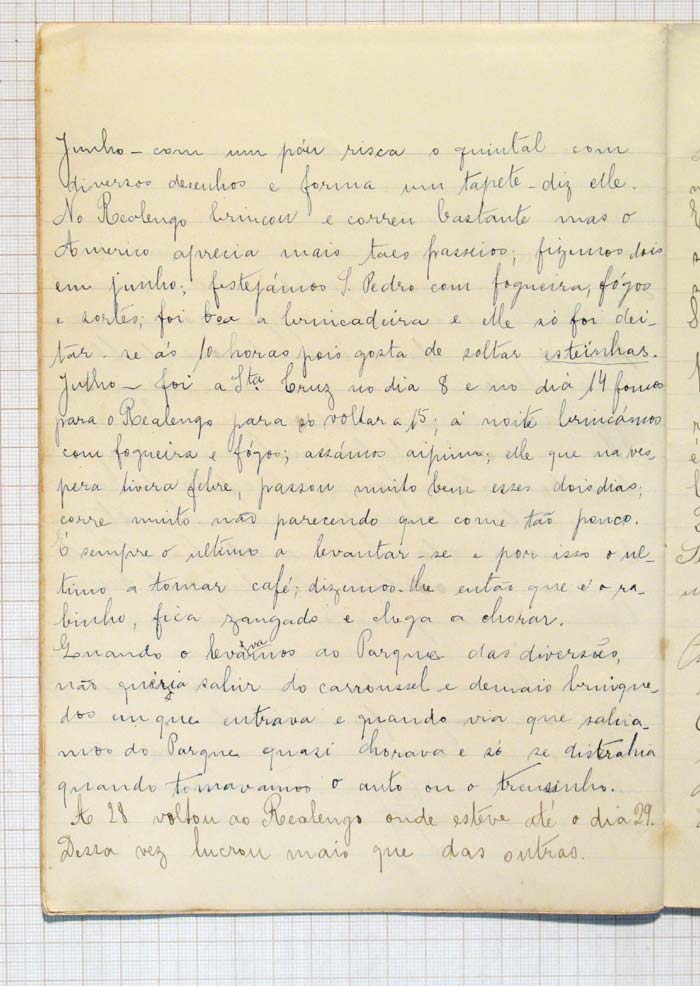 Junho - com um páu risca o quintal com
diversos desenhos e forma um tapete - diz elle.
No Realengo brincou e correu bastante mas o
Americo aprecia mais taes passeios; fizemos dois
em junho; festejámos S. Pedro com fogueira, fógos
e sortes; foi boa a brincadeira e elle só foi dei-
tar-se ás 10 horas pois gosta de soltar esteinhas.
Julho - foi a Sta. Cruz no dia 8 e no dia 14 fomos
para o Realengo para só voltar a 15; á noite brincámos
com fogueira e fógos; assámos aipim; elle que na ves-
pera tivera febre, passou muito bem esses dois dias;
corre muito não parecendo que come tão pouco.
É sempre o ultimo a levantar-se e por isso o ul-
timo a tomar café; dizemos-lhe então que é o ra-
binho, fica zangado e chega a chorar.
Quando o levavamos ao Parque das diversões,
não queria sahir do carroussel e demais brinque-
dos em que entrava e quando via que sahia-
mos do Parque quasi chorava e só se distrahia
quando tomavamos o auto ou o trensinho.
A 28 voltou ao Realengo onde estève até o dia 29.
Dessa vez lucrou mais que das outras.